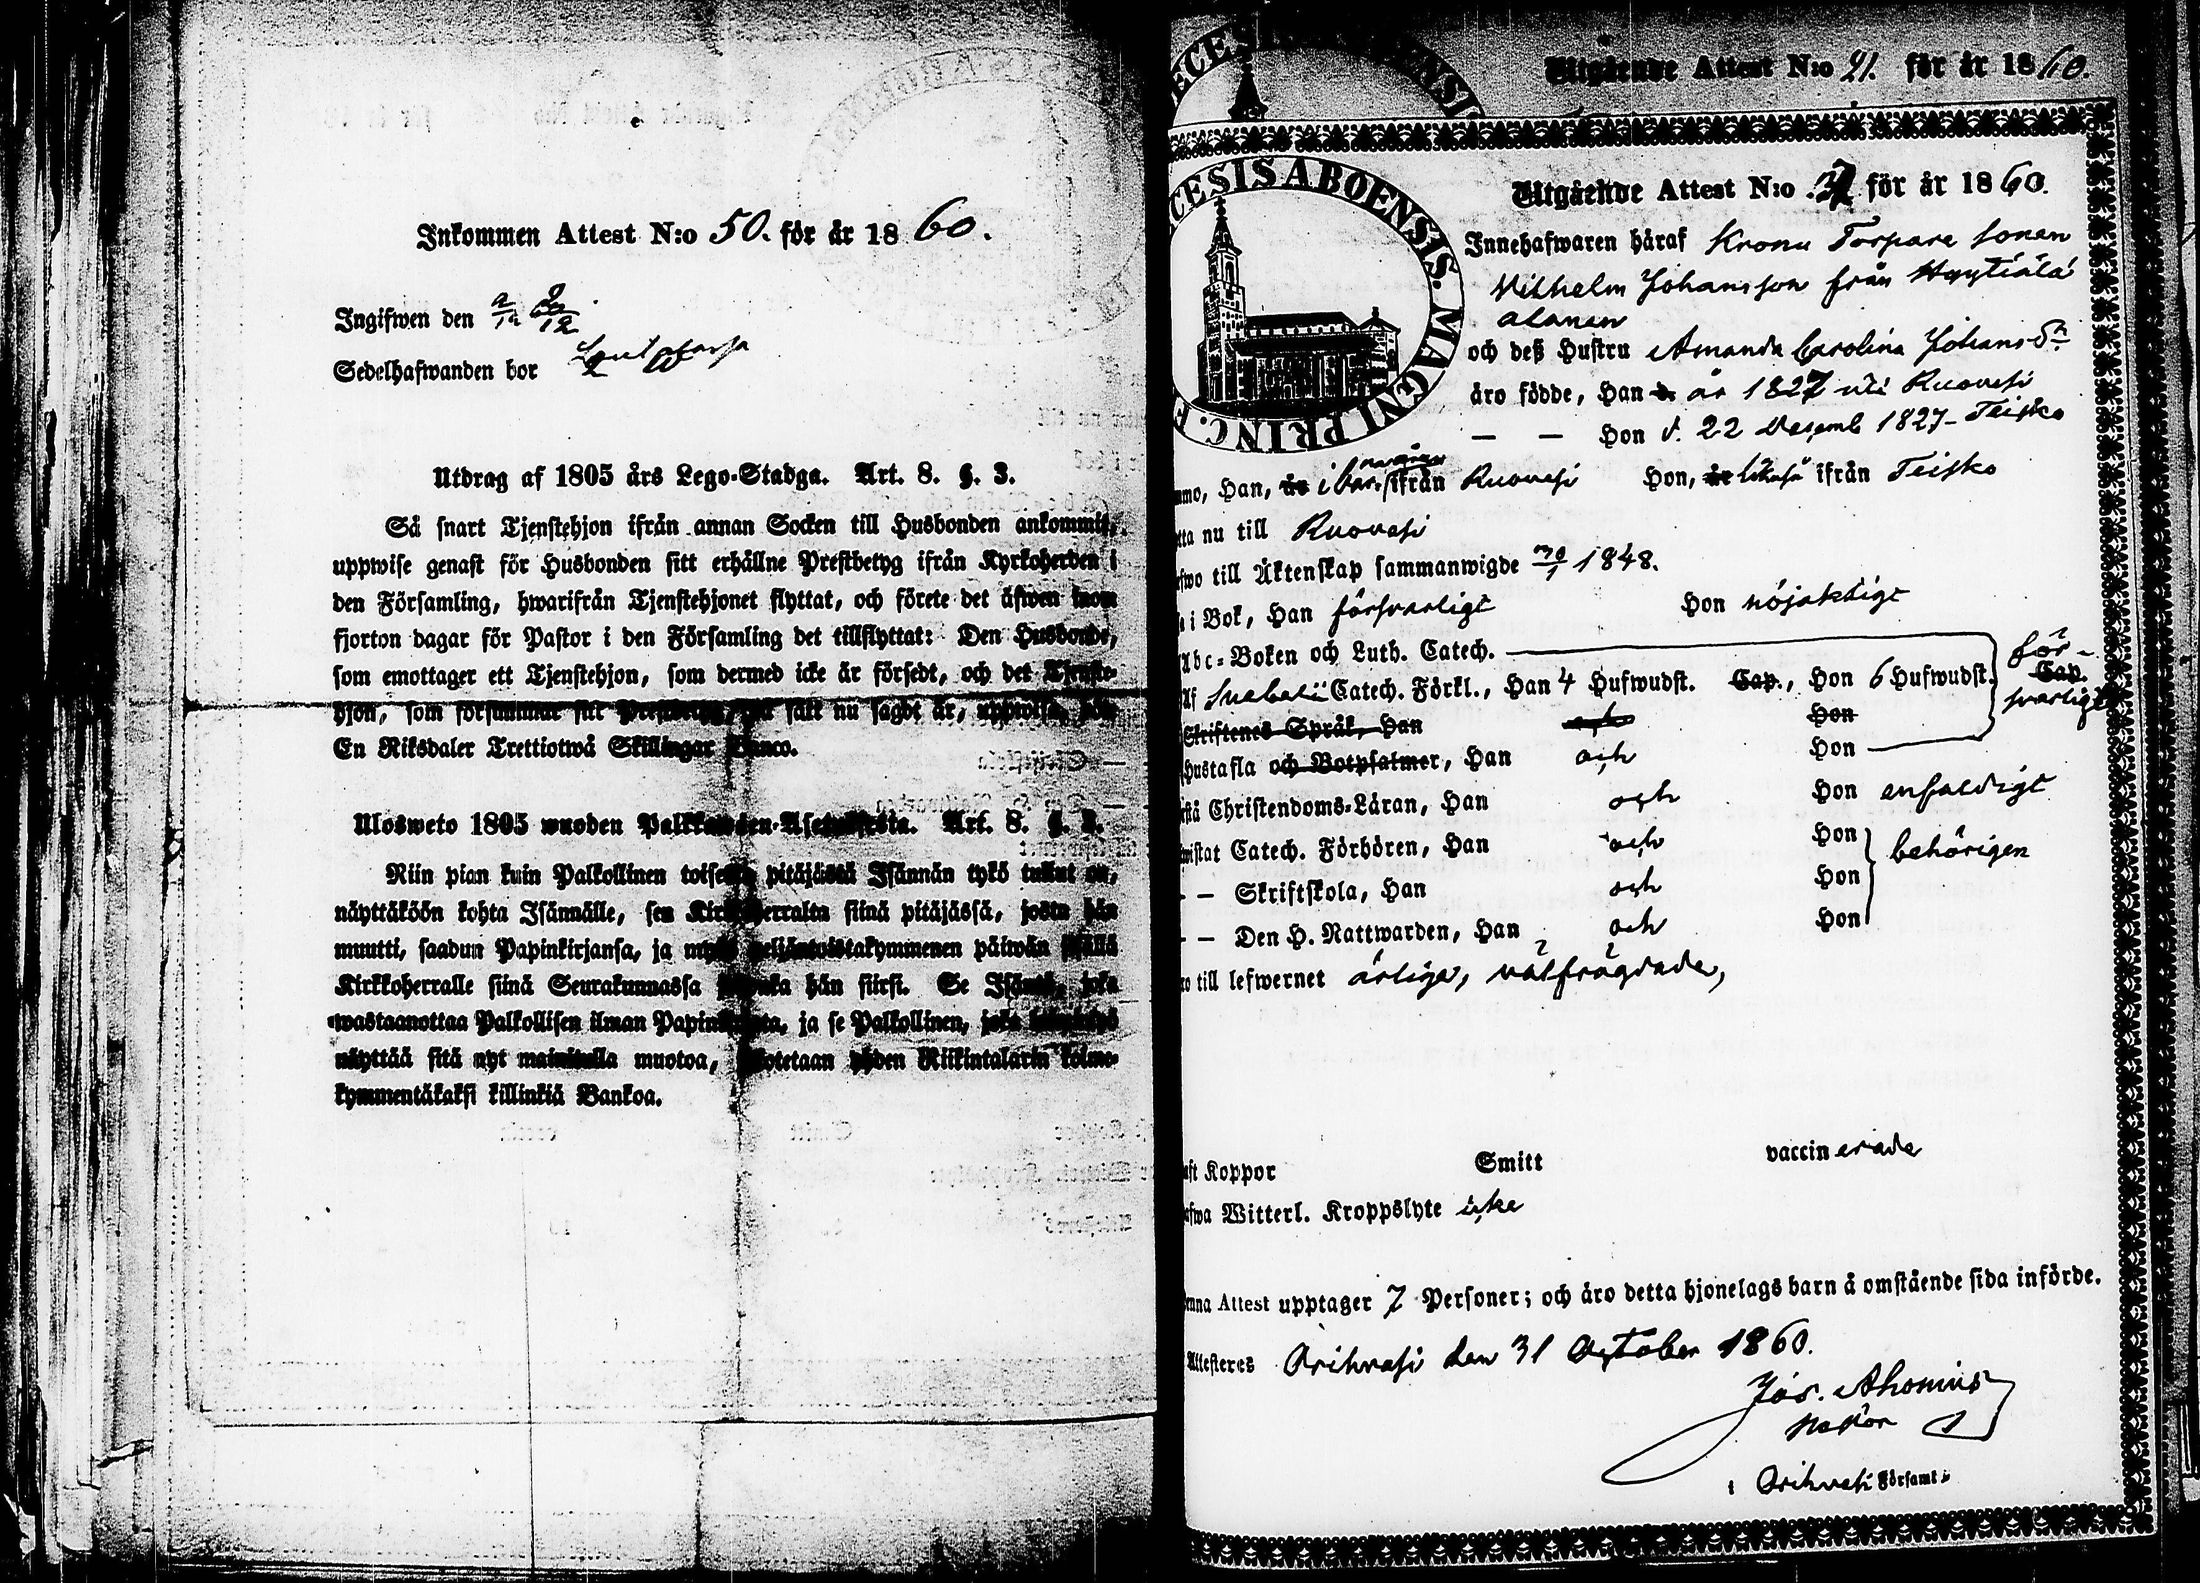 Inkommen Attest N:o 50. för år 1860.
Ingifwen den
Sedelhafwanden bor
Utdrag af 1805 års Lego-Stadga. Art. 8. §. 3.
Så snart Tjenstehjon ifrån annan Socken till Husbonden ankommit,
uppwise genast för Husbonden sitt erhållne Prestbetyg ifrån Kyrkoherden i
den Församling, hwarifrån Tjenstehjonet flyttat, och förete det äfwen inom
fjorton dagar för Pastor i den Församling det tillflyttat: Den Husbonde,
som emottager ett Tjenstehjon, som dermed icke är försedt, och det Tjenste-
hjon, som försummar sitt Prestbetyg, på sätt nu sagdt är, uppwisa, böte
En Riksdaler Trettiotwå Skillingar Banco.
Ulosweto 1805 wuoden Palkkawäen-Asetuksesta. Art. 8. §. 3.
Niin pian kuin Palkollinen toisesta pitäjästä Isännän tykö tullut on,
näyttäköön kohta Isännälle, sen Kirkkoherralta siinä pitäjässä, josta hän
muutti, saadun Papinkirjansa, ja myös neljäntoistakymmenen päiwän sisällä
Kirkkoherralle siinä Seurakunnassa jhonka hän siirsi. Se Isäntä, joka
wastaanottaa Palkollisen ilman Papinkirjata, ja se Palkollinen, joka
näyttää sitä nyt mainitulla muotoa, sakotetaan yhden Riikintalarin kolme-
kymmentäkaksi killinkiä Bankoa.
DIECESIS ABOENSIS
Utgående Attest N:o 21. för år 1860.
DIECESIS ABOENSIS. MAGNI PRINC. F
Utgående Attest N:o för år 1860.
Innehafwaren häraf Krono Torpare sonen
Wilhelm Johansson från Hyytiälä
alanen
och deß Hustru Amanda Carolina Johans Dr
äro födde, Han d. år 1827 uti Ruovesi
— — Hon d. 22 Decemb 1827 - Teisko
mo, Han, är i barn ifrån Ruovesi Hon, är likaså ifrån Teisko
tta nu till Ruovesi
fwo till Äktenskap sammanwigde 1848.
a i Bok, Han försvarligt Hon nöjaktigt
Abc-Boken och Luth. Catech.
Af Svebelii Catech. Förkl., Han 4 Hufwudst. Cap., Hon 6 Hufwudst. Cap. för-
svarligt
Skriftenes Språk, Han och Hon
Hustafla och Botpsalmer, Han och Hon
stå Christendoms-Läran, Han och Hon enfaldigt
wistat Catech. Förhören, Han och Hon behörigen
- — Skriftskola, Han och Hon
- — Den H. Nattwarden, Han och Hon
ro till lefwernet ärliga, välfrägdade,
aft Koppor Smitt vaccinerade
afwa Witterl. Kroppslyte icke
enna Attest upptager 7 Personer; och äro detta hjonelags barn å omstående sida införde.
Attesteres Orihvesi den 31 October 1860.
Jos. Ahonius
i Orihvesi Församl: